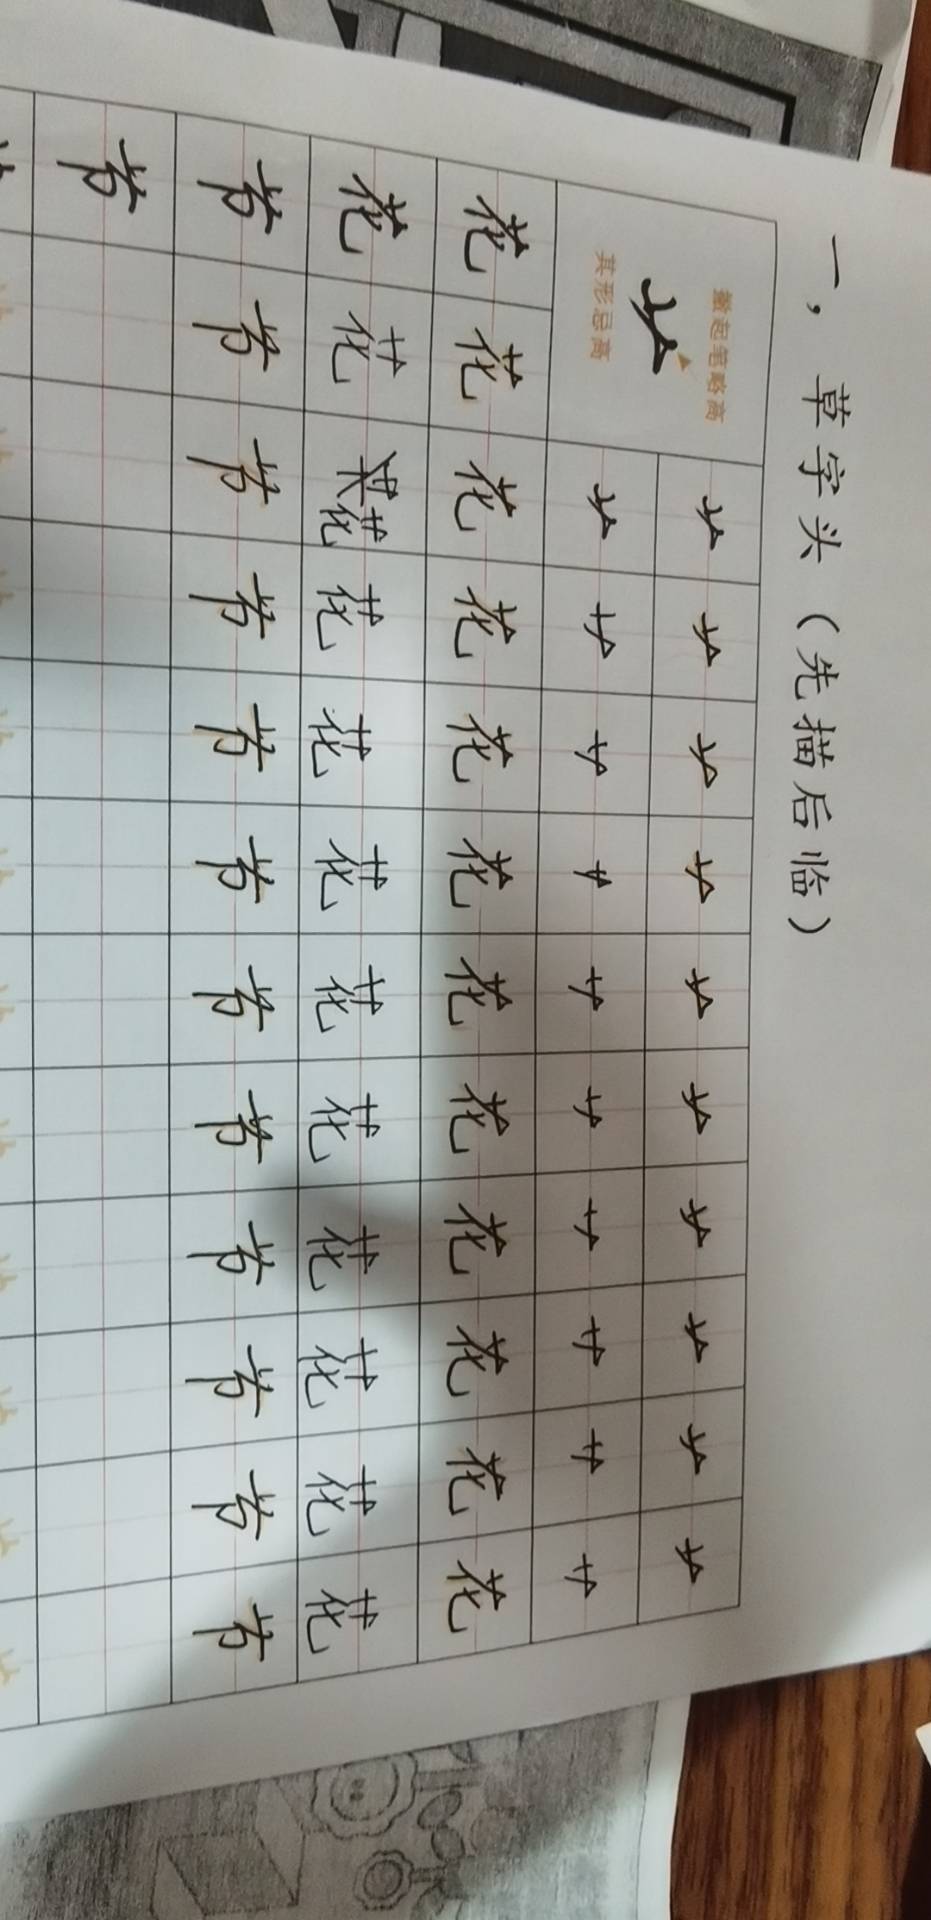 一，草字头（先描后临）
撇起笔略高
艹
其形忌高
艹 艹 艹 艹 艹 艹 艹 艹 艹 艹
艹 艹 艹 艹 艹 艹 艹 艹 艹 艹
花 花 花 花 花 花 花 花 花 花 花 花
花 花 花 花 花 花 花 花 花 花 花 花
节 节 节 节 节 节 节 节 节 节 节 节
节